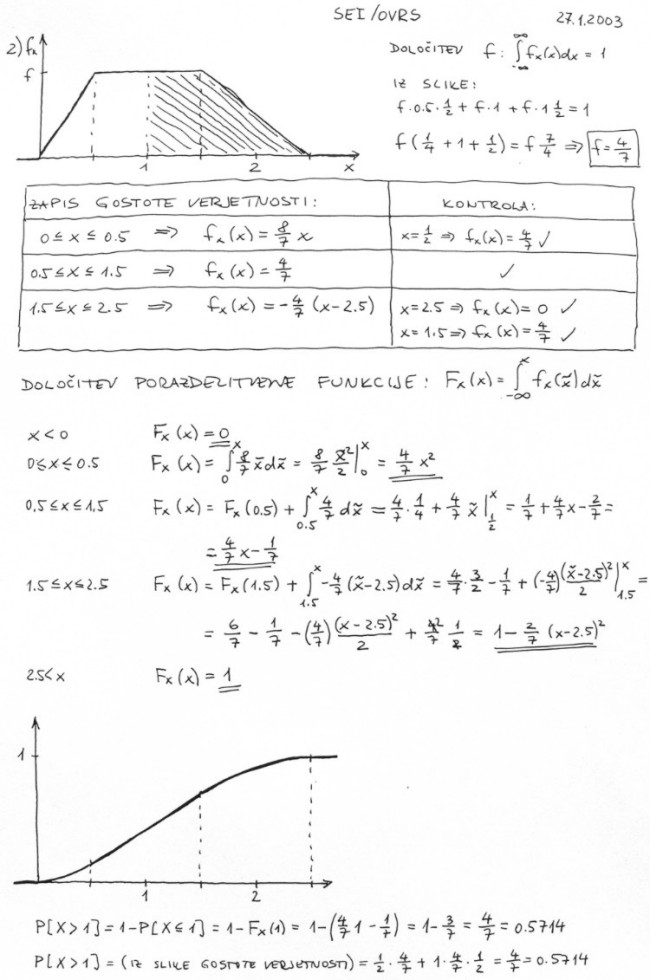 SEI/OVRS 27.1.2003
2) fx
f
1 2 x
DOLOČITEV f: ∫_{-∞}^{∞} fx(x)dx = 1
IZ SLIKE:
f·0.5·1/2 + f·1 + f·1 1/2 = 1
f(1/4 + 1 + 1/2) = f 7/4 ⇒ f = 4/7
ZAPIS GOSTOTE VERJETNOSTI: KONTROLA:
0 ≤ x ≤ 0.5 ⇒ fx(x) = 8/7 x x = 1/2 ⇒ fx(x) = 4/7 ✓
0.5 ≤ x ≤ 1.5 ⇒ fx(x) = 4/7 ✓
1.5 ≤ x ≤ 2.5 ⇒ fx(x) = -4/7 (x-2.5) x = 2.5 ⇒ fx(x) = 0 ✓
x = 1.5 ⇒ fx(x) = 4/7 ✓
DOLOČITEV PORAZDELITVENE FUNKCIJE: Fx(x) = ∫_{-∞}^{x} fx(x̃)dx̃
x < 0 Fx(x) = 0
0 ≤ x ≤ 0.5 Fx(x) = ∫_0^x 8/7 x̃dx̃ = 8/7 x̃²/2 |_0^x = 4/7 x²
0.5 ≤ x ≤ 1.5 Fx(x) = Fx(0.5) + ∫_{0.5}^x 4/7 dx̃ = 4/7 · 1/4 + 4/7 x̃ |_{1/2}^x = 1/7 + 4/7 x - 2/7 =
= 4/7 x - 1/7
1.5 ≤ x ≤ 2.5 Fx(x) = Fx(1.5) + ∫_{1.5}^x -4/7 (x̃-2.5)dx̃ = 4/7 · 3/2 - 1/7 + (-4/7) (x̃-2.5)²/2 |_{1.5}^x =
= 6/7 - 1/7 - (4/7) (x-2.5)²/2 + 4/7 1/2 = 1 - 2/7 (x-2.5)²
2.5 < x Fx(x) = 1
1
1 2
P[X>1] = 1-P[X≤1] = 1-Fx(1) = 1-(4/7 1 - 1/7) = 1 - 3/7 = 4/7 = 0.5714
P[X>1] = (IZ SLIKE GOSTOTE VERJETNOSTI) = 1/2 · 4/7 + 1 · 4/7 · 1/2 = 4/7 = 0.5714